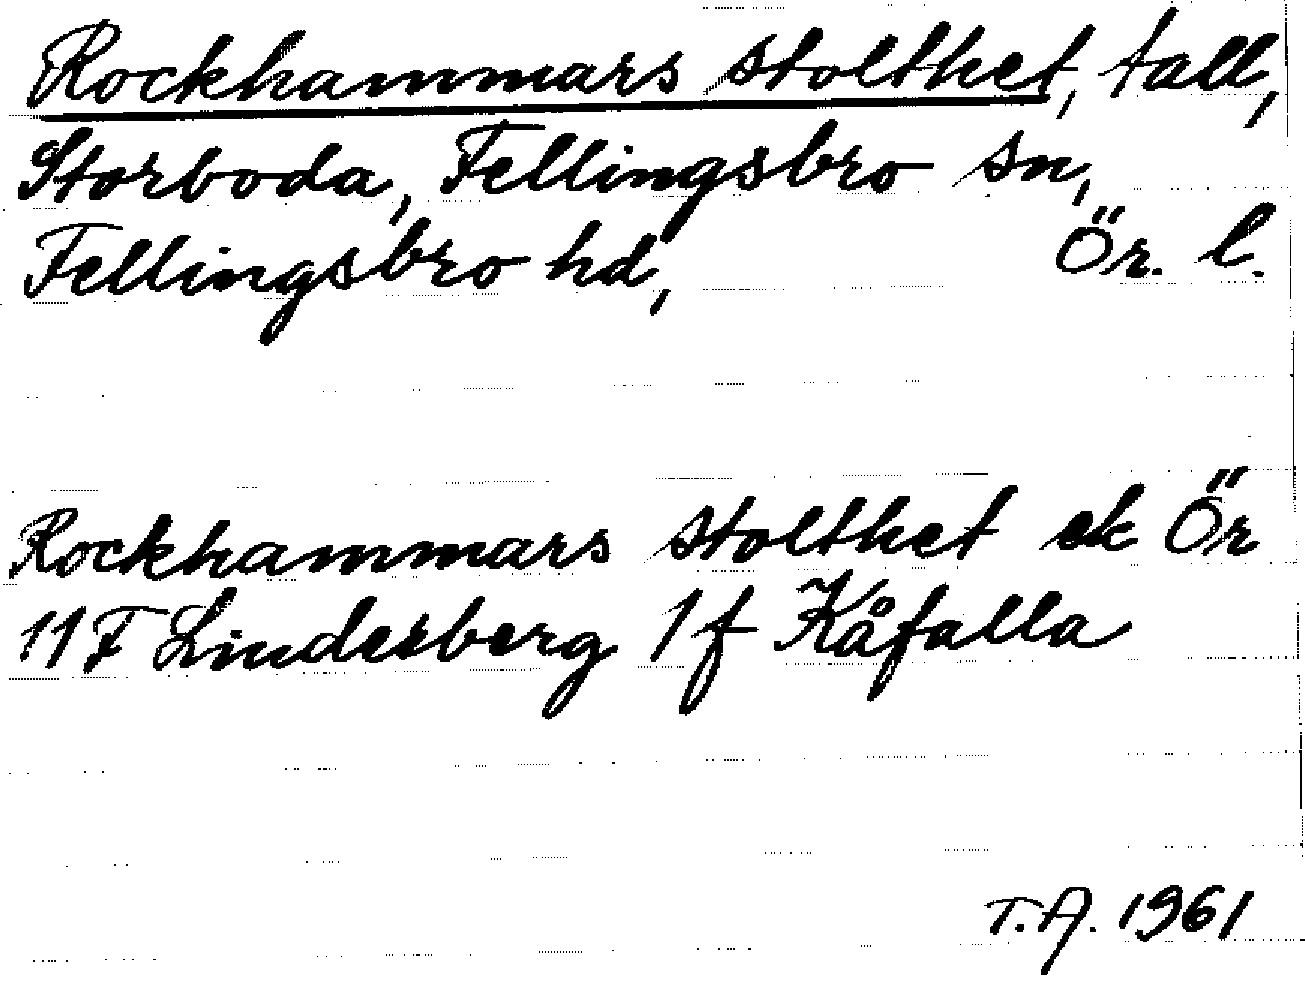 Rockhammars stolthet, tall,
Storboda, Fellingsbro sn,
Fellingsbro hd, Ör. l.
Rockhammars stolthet ek Ör
11 F Lindesberg 1 f Kåfalla
T.A. 1961